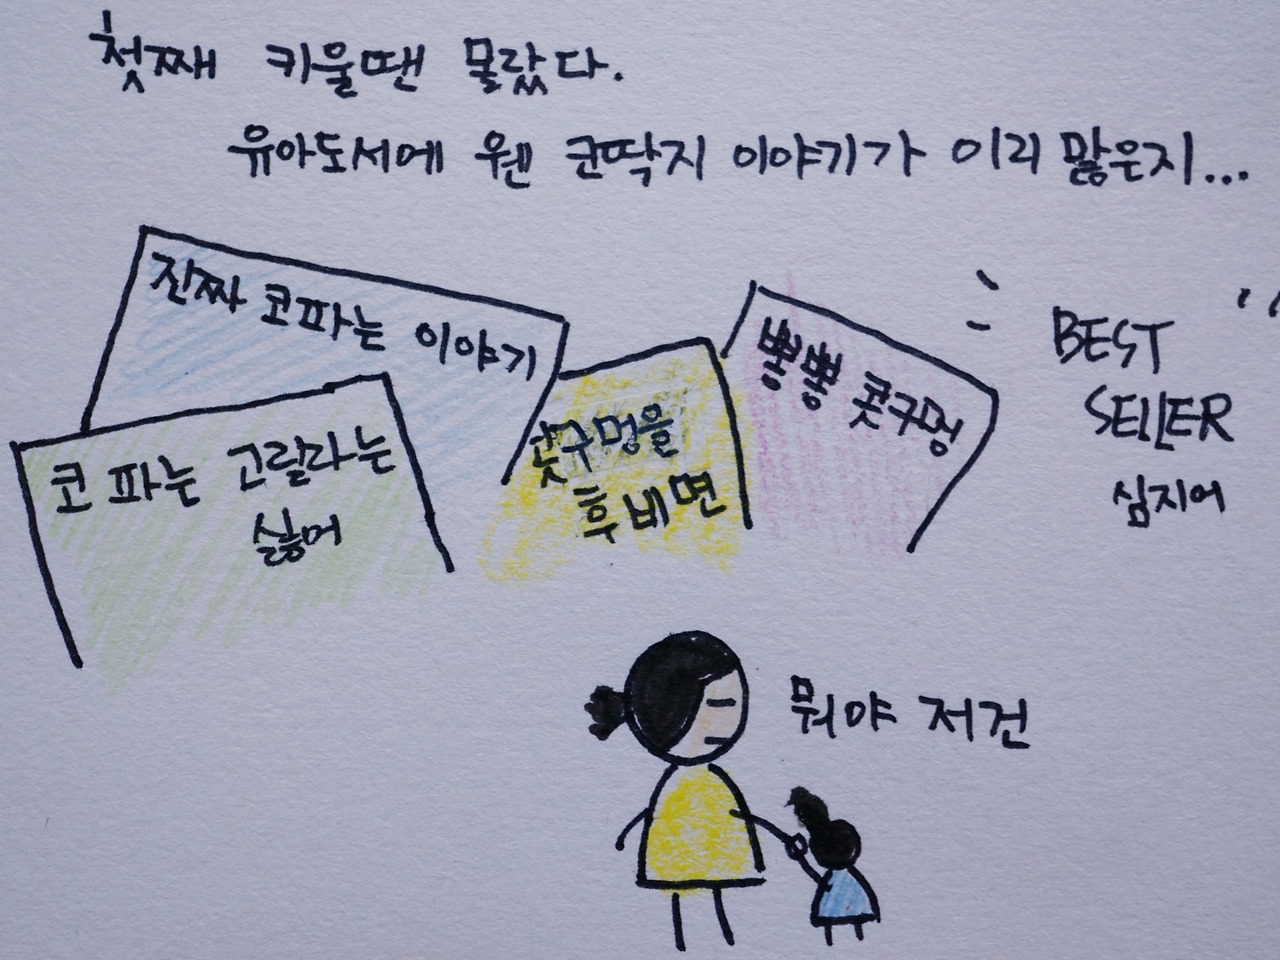 첫째 키울땐 몰랐다.
유아도서에 웬 코딱지 이야기가 이리 많은지...
진짜 코파는 이야기
코 파는 고릴라는
싫어
콧구멍을
후비면
뿅뿅 콧구멍
BEST
SELLER
심지어
뭐야 저건